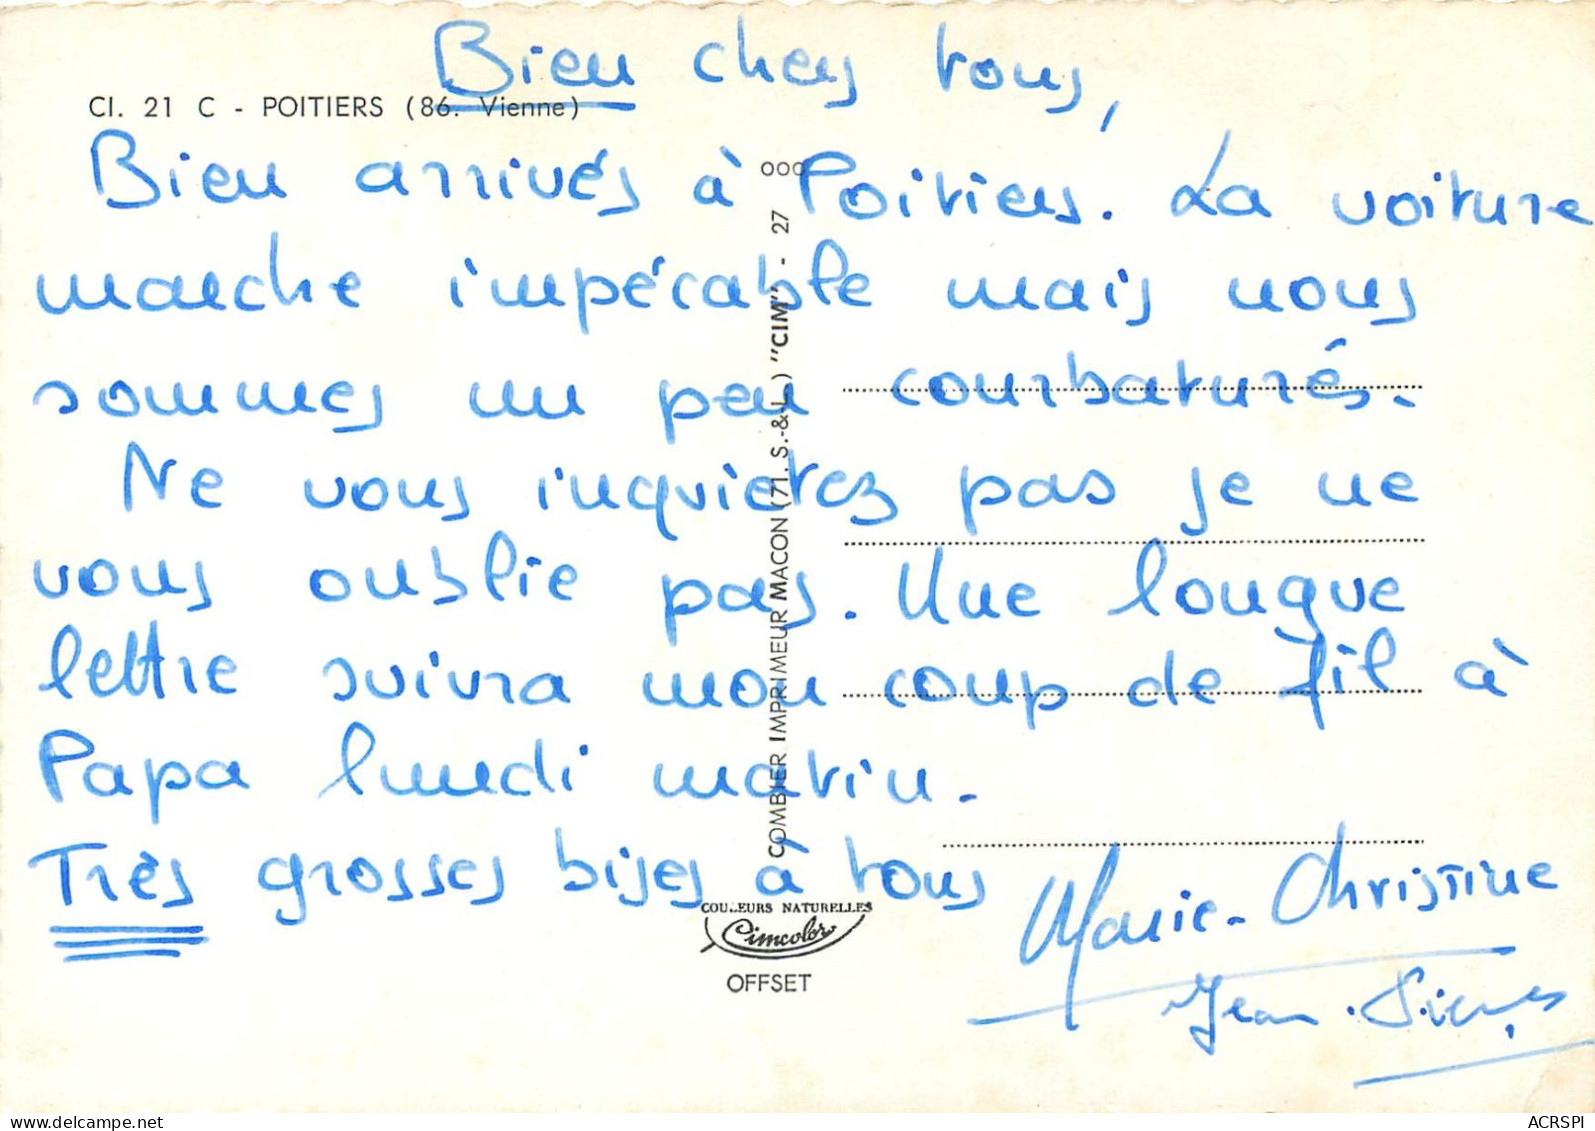 Bien chers tous,
Cl. 21 C - POITIERS (86. Vienne)
Bien arrivés à Poitiers. La voiture
marche impécable mais nous
sommes un peu courbaturés.
Ne vous inquietez pas je ne
vous oublie pas. Une longue
lettre suivra mon coup de fil à
Papa lundi matin.
Très grosses bises à tous
Marie-Christine
Jean.Pierre
000
COMBIER IMPRIMEUR MACON (71. S.-&-L.) "CIM" - 27
COULEURS NATURELLES
Cimcolor
OFFSET
delcampe.net
ACRSPI